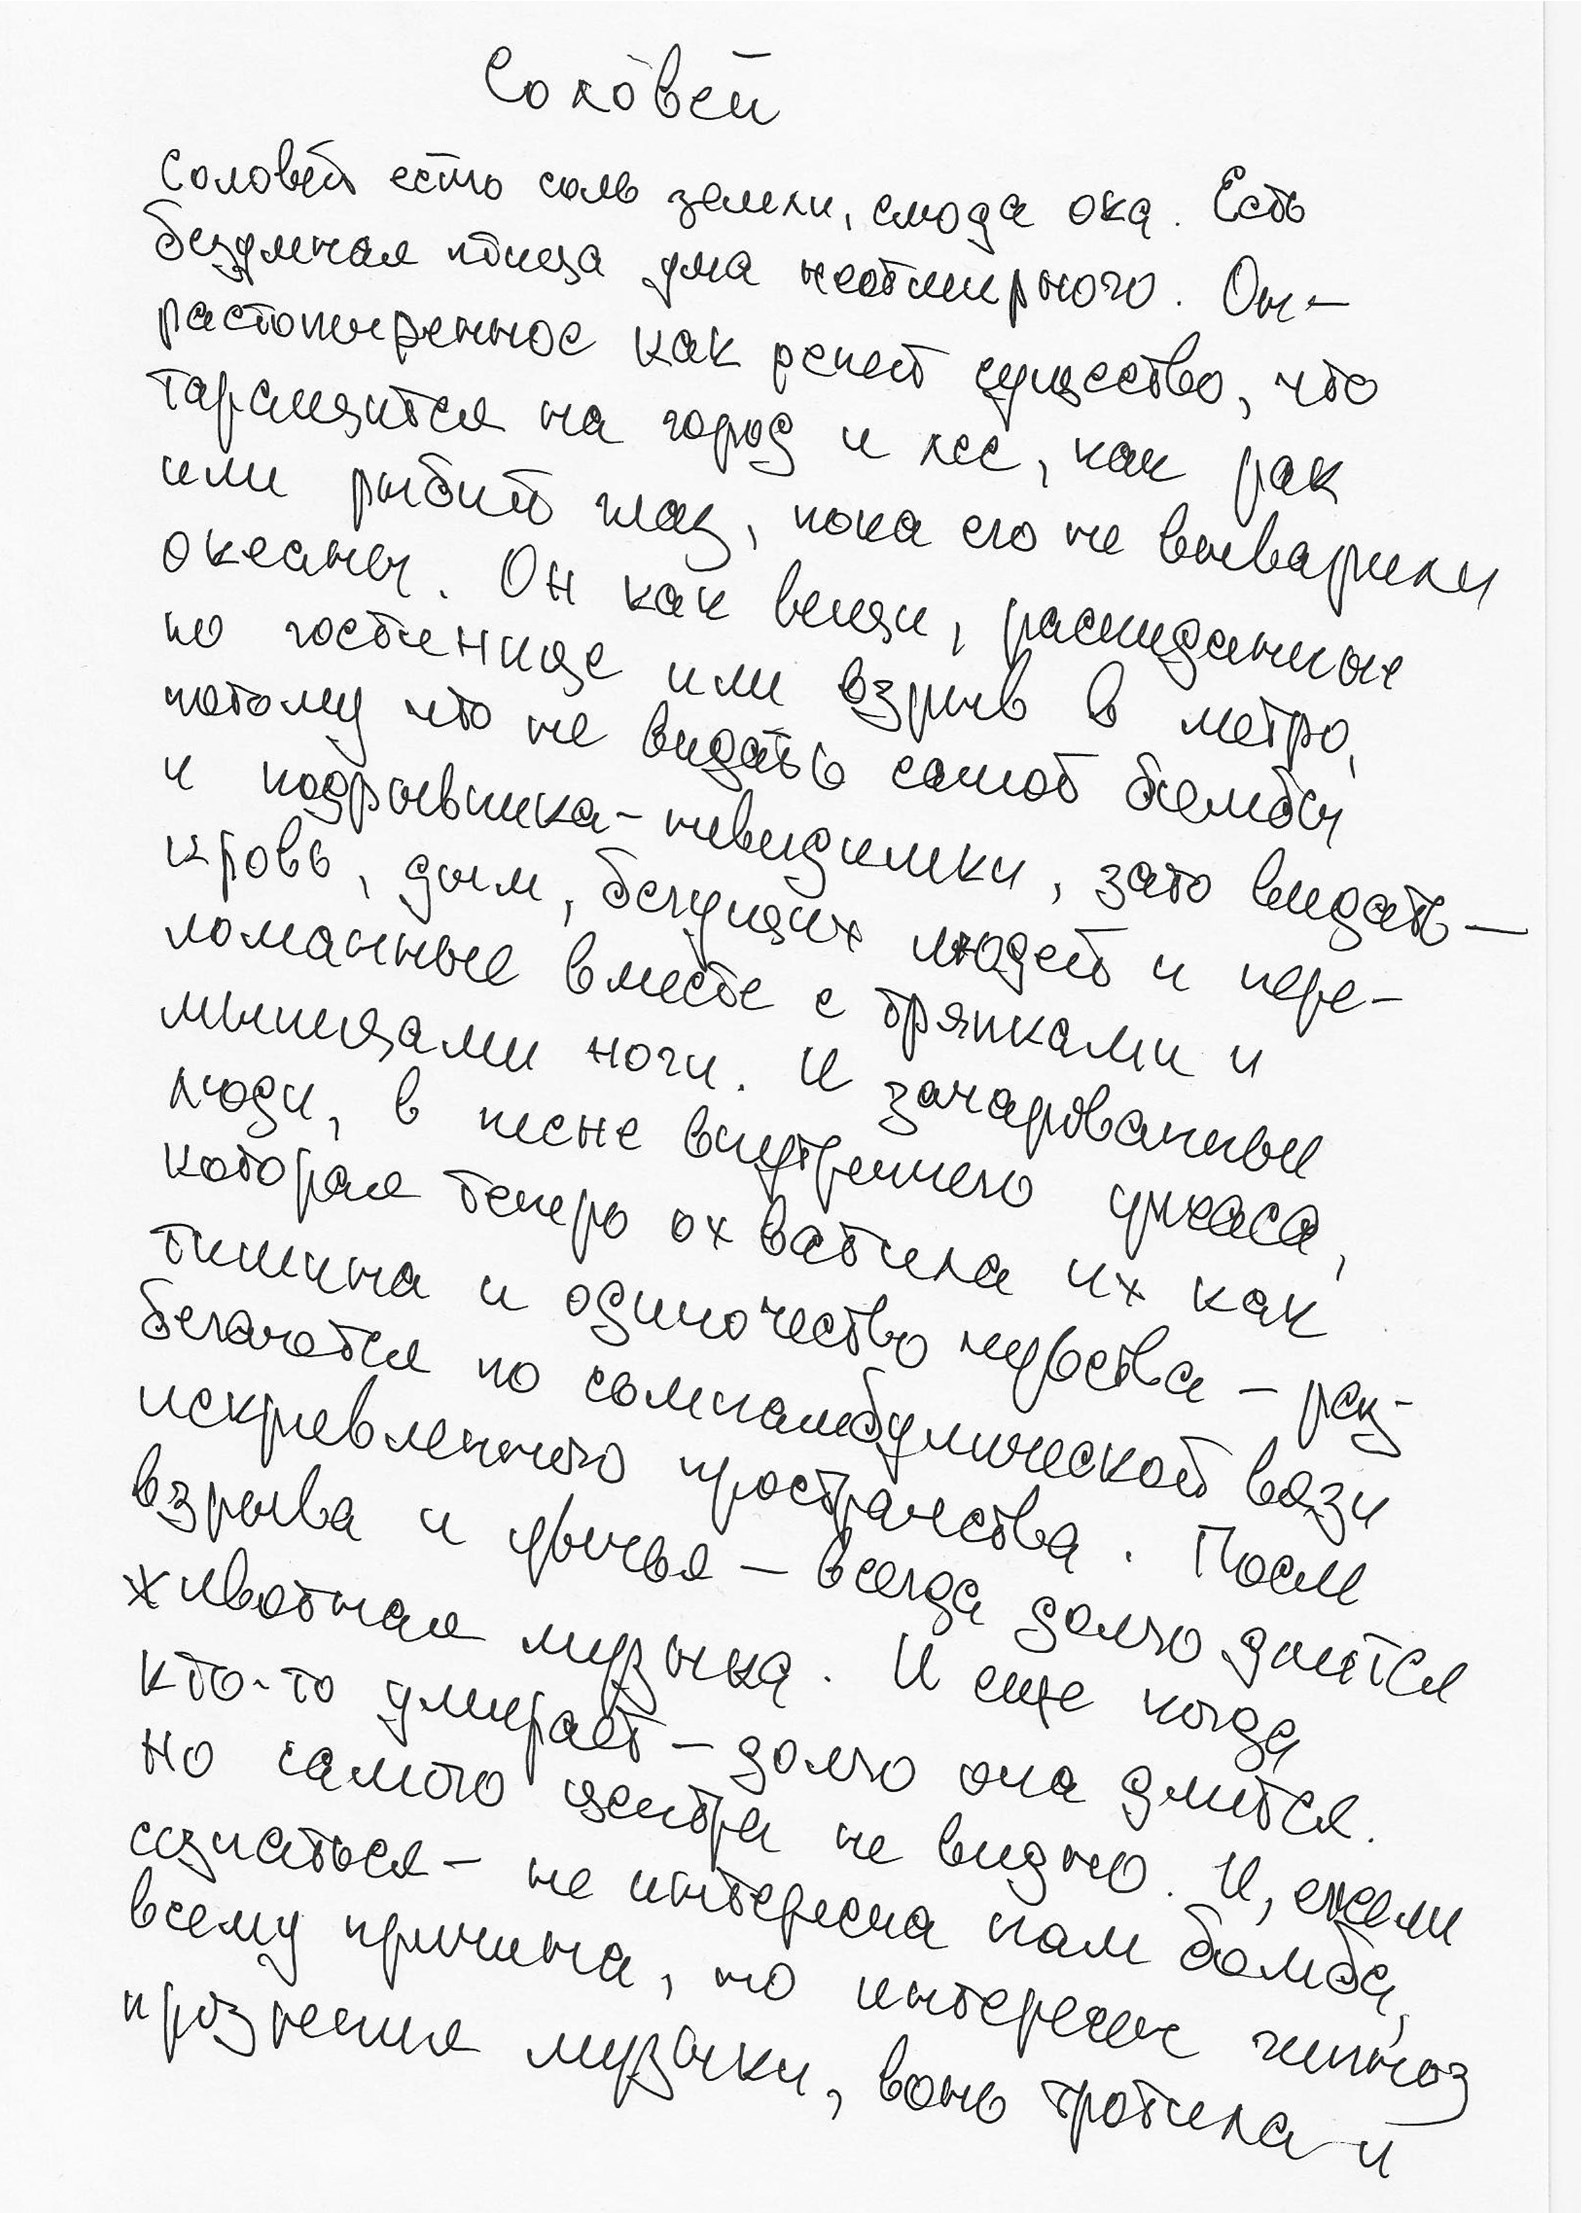 Соловей
Соловей есть соль земли, слюда ока. Есть
безумная птица ума неотмирного. Он –
растопыренное как репей существо, что
таращится на город и лес, как рак
или рыбий глаз, пока его не выварили
океаны. Он как вещи, раскиданные
по гостинице или взрыв в метро,
потому что не видать самой бомбы
и подрывника-невидимки, зато видать –
кровь, дым, бегущих людей и пере-
ломанные вместе с тряпками и
мышцами ноги. И зачарованные
люди, в песне внутреннего ужаса,
которая теперь охватила их как
тишина и одиночество чувства – раз-
бегаются по сомнамбулической вязи
искривленного пространства. После
взрыва и убычья – всегда долго длится
животная музыка. И еще когда
кто-то умирает – долго она длится.
Но самого центра не видно. И, ежели
сознаться – не интересна нам бомба,
всему причина, но интересен гипноз
прозрения музыки, вонь тротила и